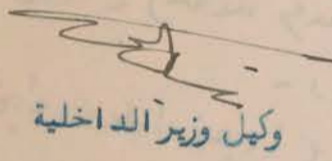 وكيل وزير الداخلية